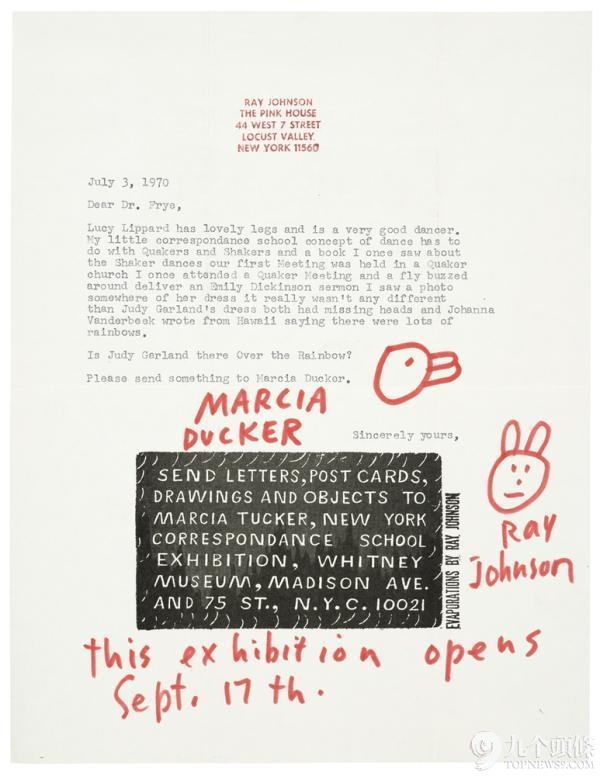 RAY JOHNSON
THE PINK HOUSE
44 WEST 7 STREET
LOCUST VALLEY
NEW YORK 11560
July 3, 1970
Dear Dr. Frye,
Lucy Lippard has lovely legs and is a very good dancer.
My little correspondance school concept of dance has to
do with Quakers and Shakers and a book I once saw about
the Shaker dances our first Meeting was held in a Quaker
church I once attended a Quaker Meeting and a fly buzzed
around deliver an Emily Dickinson sermon I saw a photo
somewhere of her dress it really wasn't any different
than Judy Garland's dress both had missing heads and Johanna
Vanderbeek wrote from Hawaii saying there were lots of
rainbows.
Is Judy Garland there Over the Rainbow?
Please send something to Marcia Ducker.
MARCIA
DUCKER
Sincerely yours,
SEND LETTERS, POST CARDS,
DRAWINGS AND OBJECTS TO
MARCIA TUCKER, NEW YORK
CORRESPONDANCE SCHOOL
EXHIBITION, WHITNEY
MUSEUM, MADISON AVE.
AND 75 ST., N.Y.C. 10021
EVAPORATIONS BY RAY JOHNSON
Ray
Johnson
this exhibition opens
Sept. 17th.
九个頭條
TOPNEWS9.COM